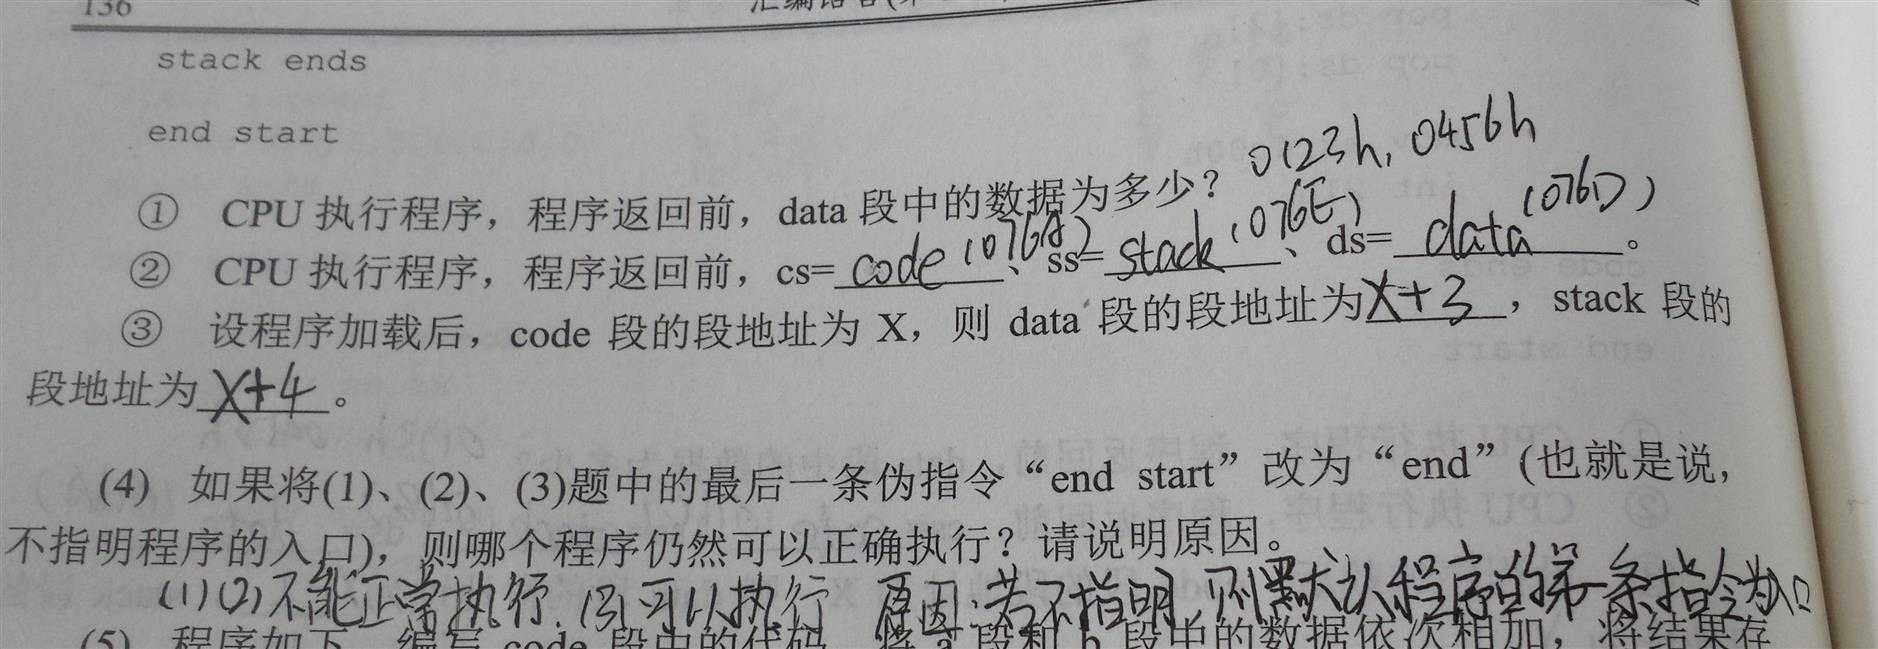 136
stack ends
end start
① CPU 执行程序，程序返回前，data 段中的数据为多少？ 0123h, 0456h
② CPU 执行程序，程序返回前，cs=code(076A)、ss=stack(076E)、ds=data(076D)。
③ 设程序加载后，code 段的段地址为 X，则 data 段的段地址为X+3，stack 段的
段地址为X+4。
(4) 如果将(1)、(2)、(3)题中的最后一条伪指令“end start”改为“end”(也就是说，
不指明程序的入口)，则哪个程序仍然可以正确执行？请说明原因。
(1)(2)不能正常执行. (3)可以执行 原因:若不指明,则默认程序的第一条指令为入口
(5) 程序如下，编写 code 段中的代码，将 a 段和 b 段中的数据依次相加，将结果存